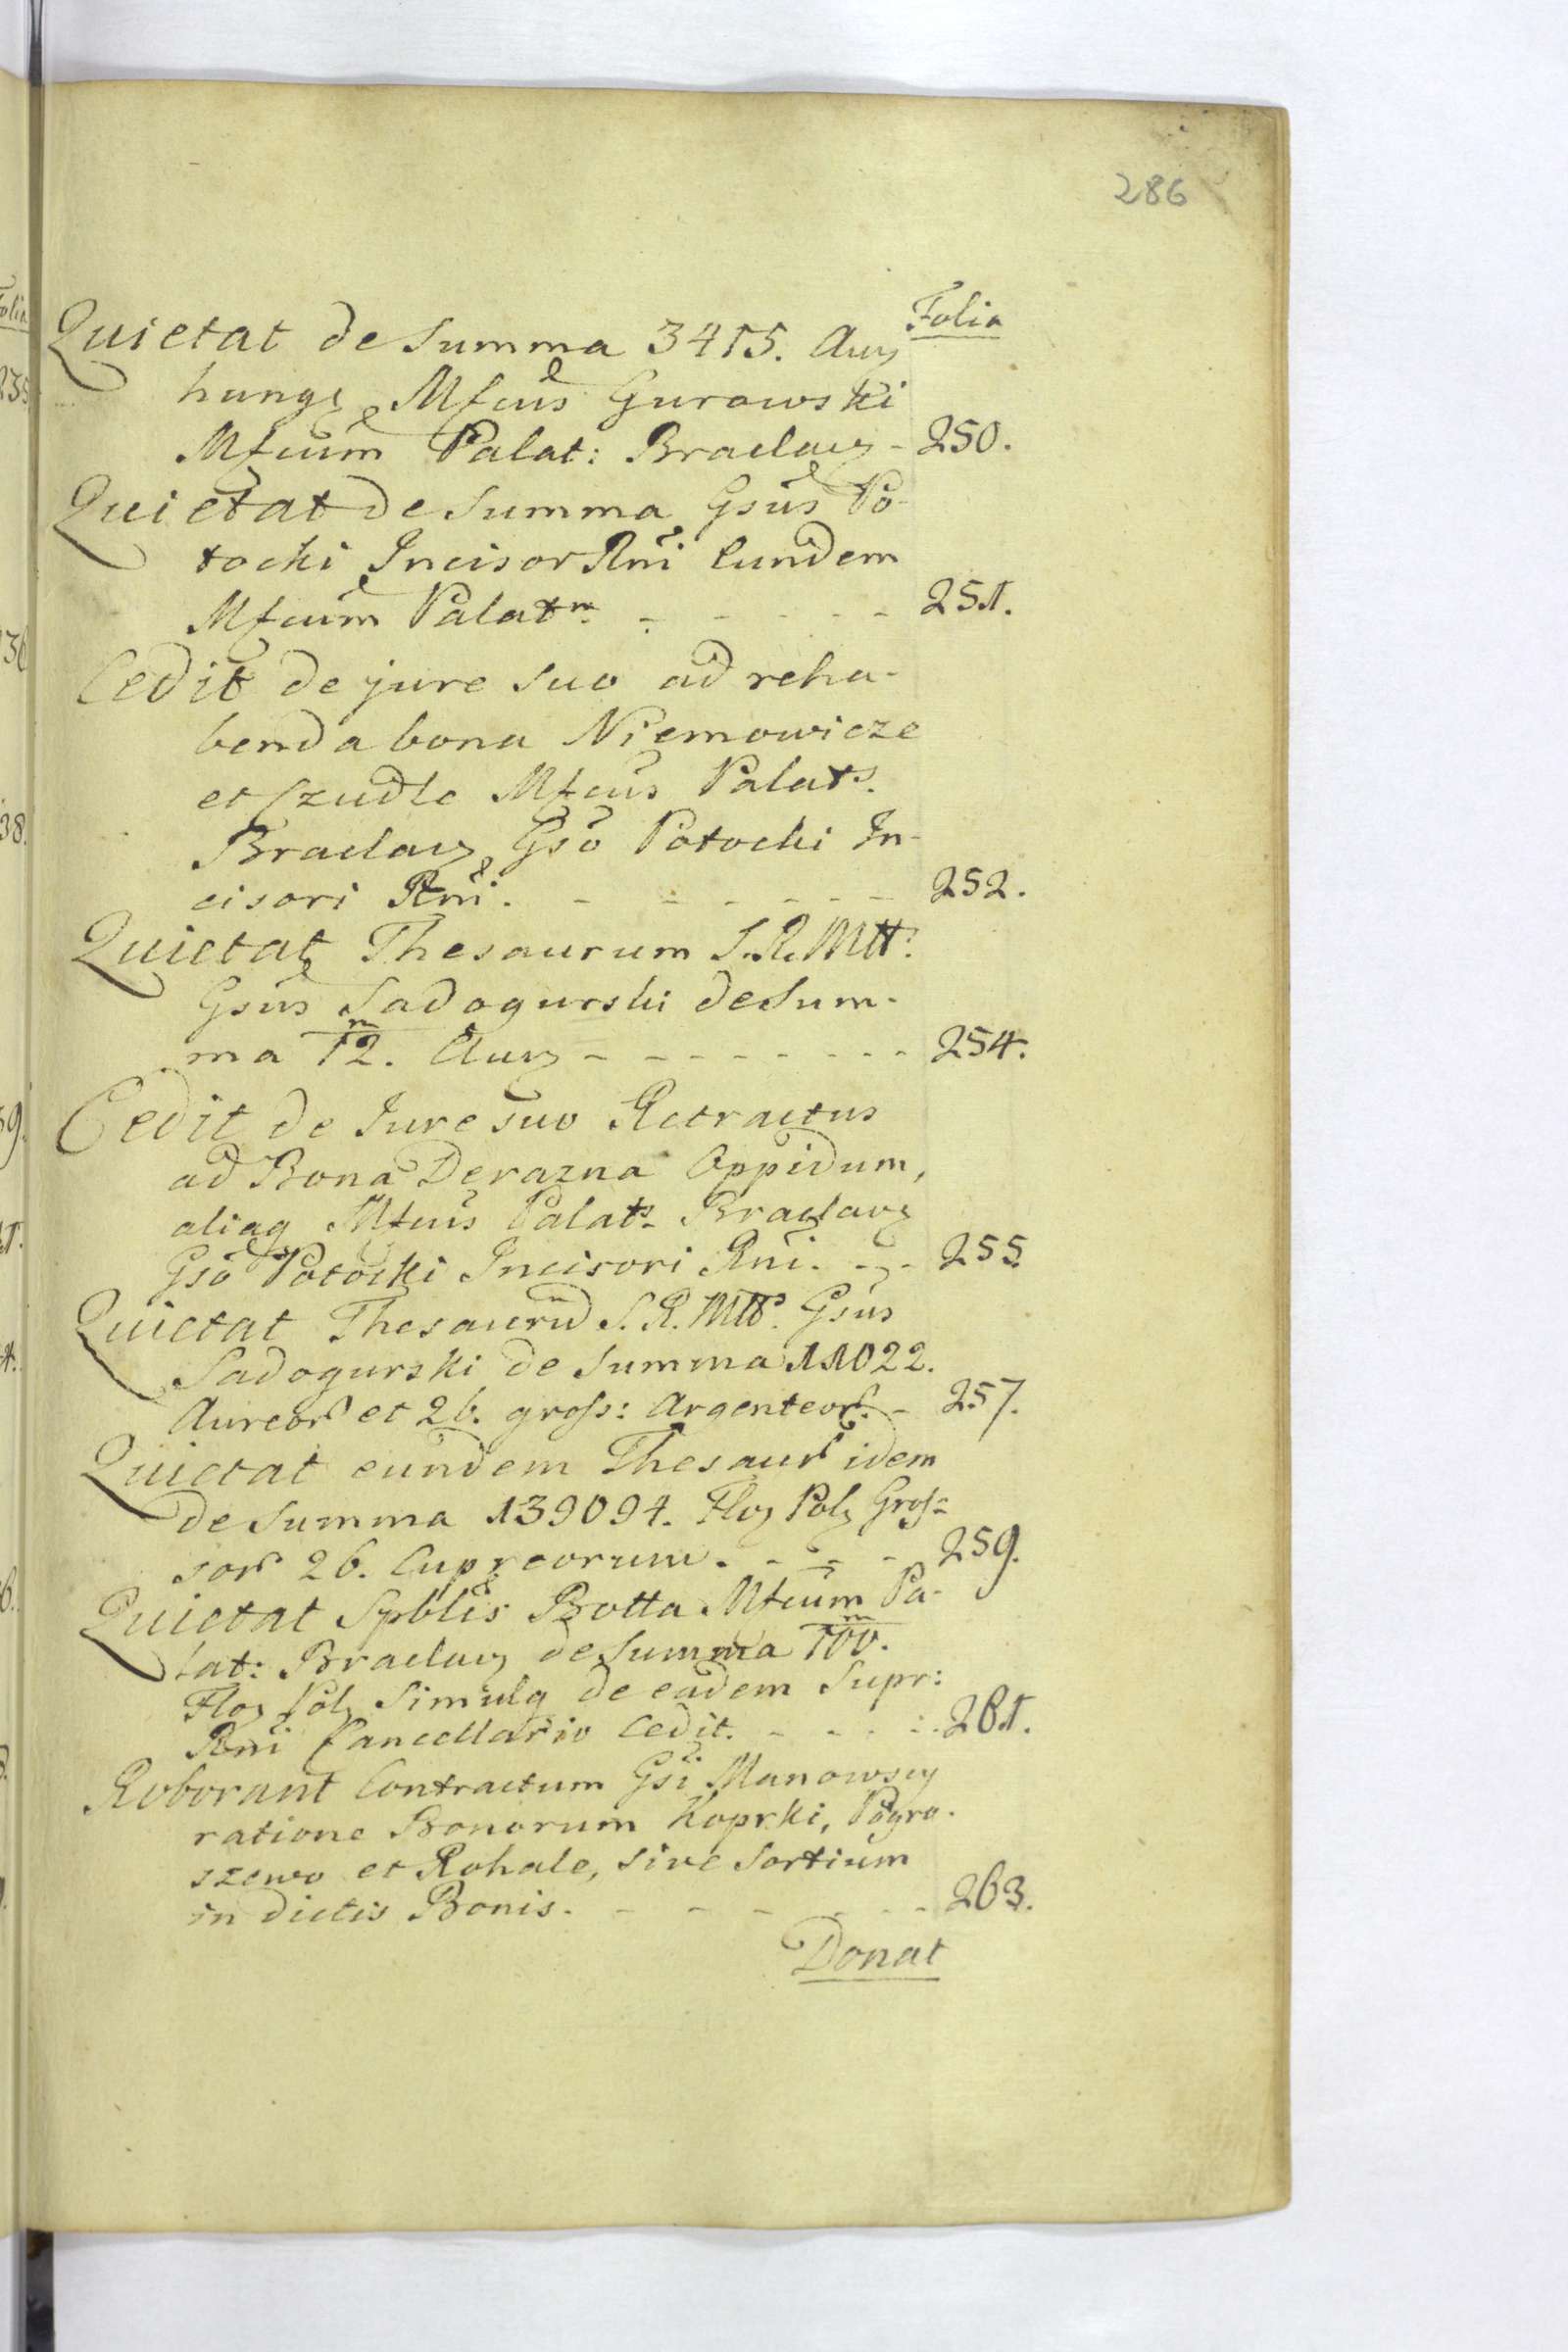 286
Folia
Quietat de Summa 3415. Aurz
hungz Mfcus Gurowski
Mfcum Palat: Braclavz - 250.
Quietat de Summa Gsus Po-
tocki Incisor Rni Eundem
Mfcum Palatm - - - - - 251.
Cedit de jure suo ad reha-
benda bona Niemowicze
et Czudle Mfcus Palats.
Braclavz Gso Potocki In-
cisori Rni. - - - - - - 252.
Quietat Thesaurum S.R.Mtt:
Gsus Sadogurski de Sum-
ma 12.m Aurz - - - - - - - - 254.
Cedit de Jure suo Retractus
ad Bona Derazna Oppidum,
aliaq Mfcus Palats Braclavz
Gso Potocki Incisori Rni. - - - 255.
Quietat Thesauru S.R.Mtt: Gsus
Sadogurski de Summa 11022.
Aureor et 26. gross: Argenteor. - 257.
Quietat eundem Thesaur idem
de Summa 139094. Floz Polz Gros-
sor 26. Cupreorum. - - - - 259.
Quietat Spblis Botta Mfcum Pa-
lat: Braclavz de Summa 100.m
Floz Polz Simulq de eadem Supr:
Rni Cancellario Cedit. - - - - 261.
Roborant Contractum Gsi Manowscy
ratione Bonorum Koprki, Pogro-
szewo et Rohale, sive Sortium
in dictis Bonis. - - - - - - 263.
Donat